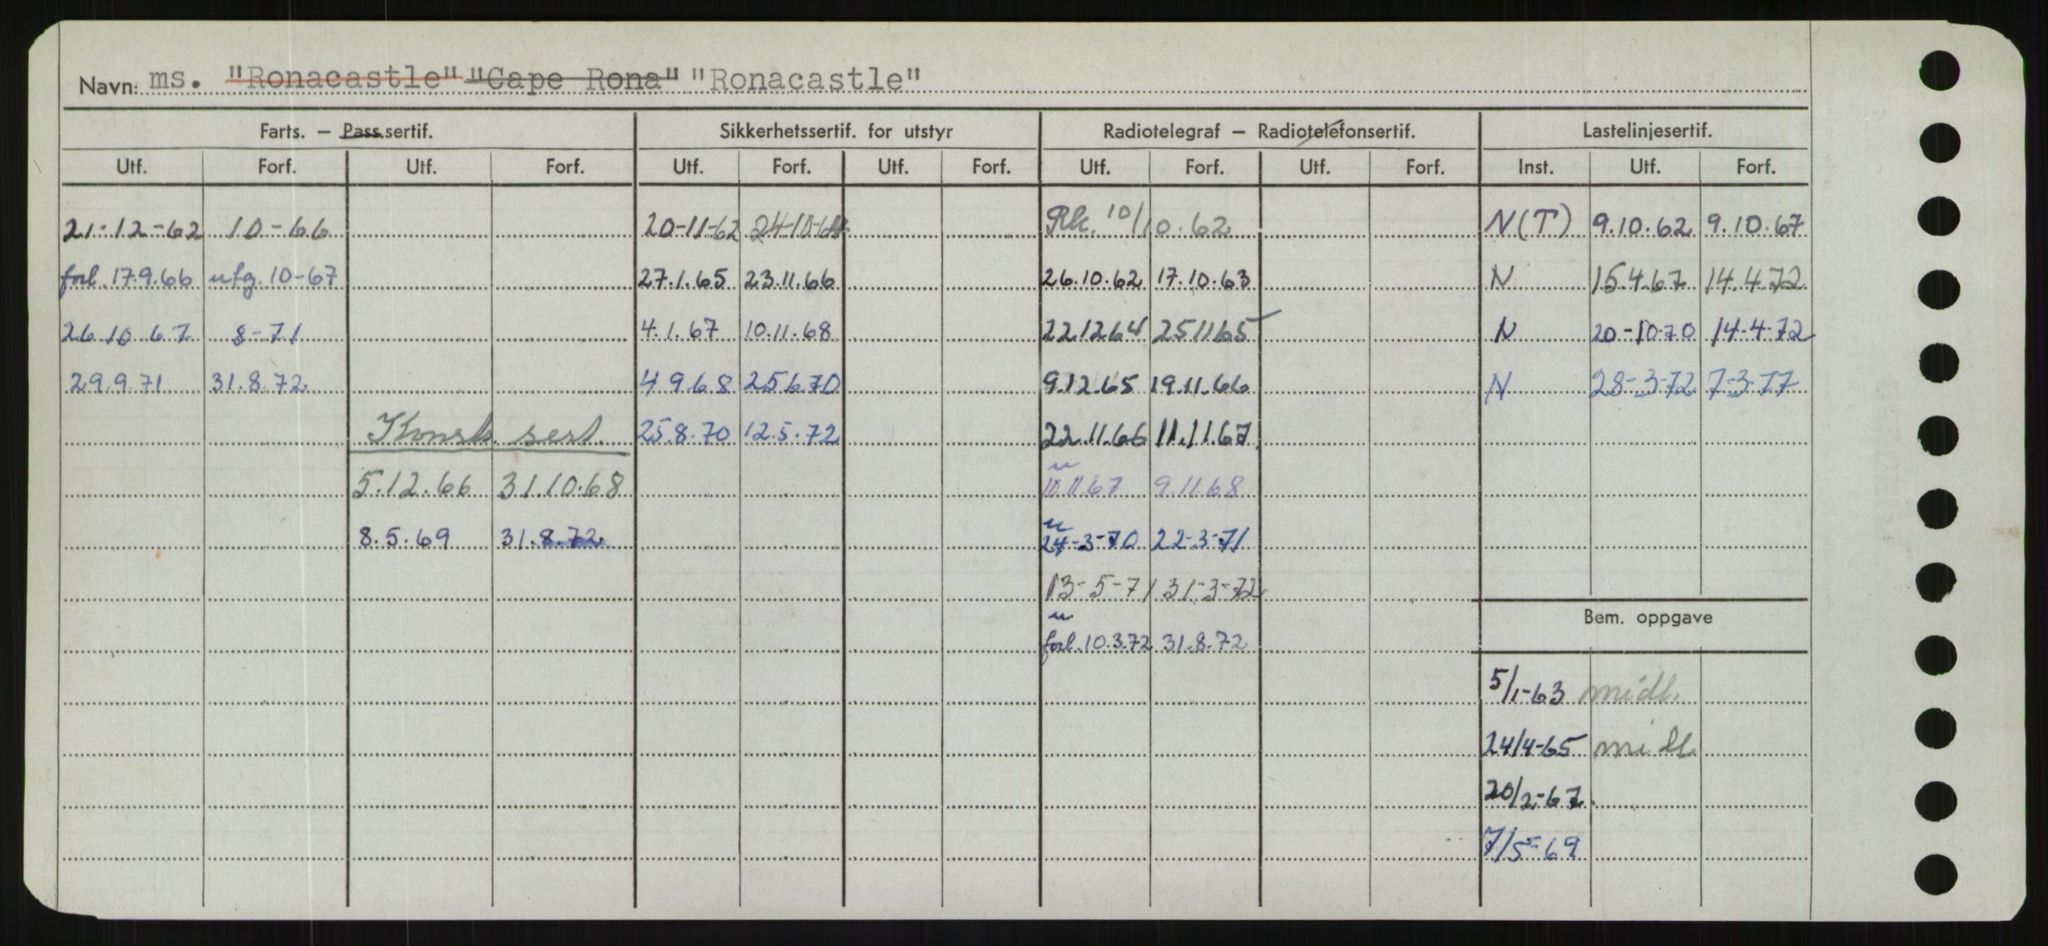 Navn: ms. "Ronacastle" "Cape Rona" "Ronacastle"
Farts. — Pass.sertif. Sikkerhetssertif. for utstyr Radiotelegraf — Radiotelefonsertif. Lastelinjesertif.
Utf. Forf. Utf. Forf. Utf. Forf. Utf. Forf. Utf. Forf. Utf. Forf. Inst. Utf. Forf.
21-12-62 10-66 20-11-62 24-10-64 Rk. 10/10.62 N(T) 9.10.62 9.10.67
forl. 17.9.66 utg. 10-67 27.1.65 23.11.66 26.10.62 17.10.63 N 15.4.67 14.4.72
26.10.67 8-71 4.1.67 10.11.68 22.12.64 25.11.65 N 20-10-70 14-4-72
29.9.71 31.8.72 4.9.68 25.6.70 9.12.65 19.11.66 N 28-3-72 7-3-77
Konstr. sert. 25.8.70 12.5.72 22.11.66 11.11.67
5.12.66 31.10.68 u 10.11.67 9.11.68
8.5.69 31.8.72 u 24-3-70 22-3-71
13-5-71 31-3-72
Bem. oppgave
u forl. 10.3.72 31.8.72
5/1-63 midl.
24/4-65 midl.
20/2-67
7/5-69